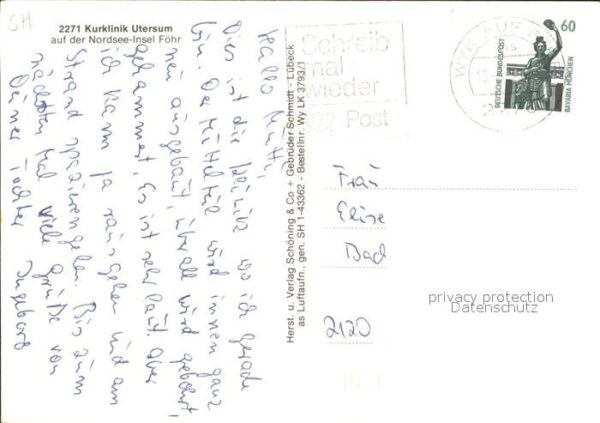 SH
2271 Kurklinik Utersum
auf der Nordsee-Insel Föhr
Hallo Mutti,
Dies ist die Klinik wo ich gerade
bin. Der Mittelteil wird innen ganz
neu ausgebaut, überall wird gebohrt,
gehämmert. Es ist sehr laut. Aber
ich kann ja rausgehen und am
Strand spazierengehen. Bis zum
nächsten Mal viele Grüße von
Deiner Tochter Ingeborg
Herst. u. Verlag Schöning & Co + Gebrüder Schmidt - Lübeck
as Luftaufn., gen. SH 1-43362 - Bestellnr. Wy LK 3793/1
Schreib
mal
wieder
Post
WYK AUF
60
DEUTSCHE BUNDESPOST
BAVARIA MÜNCHEN
Frau
Elise
Bad
2120
privacy protection
Datenschutz